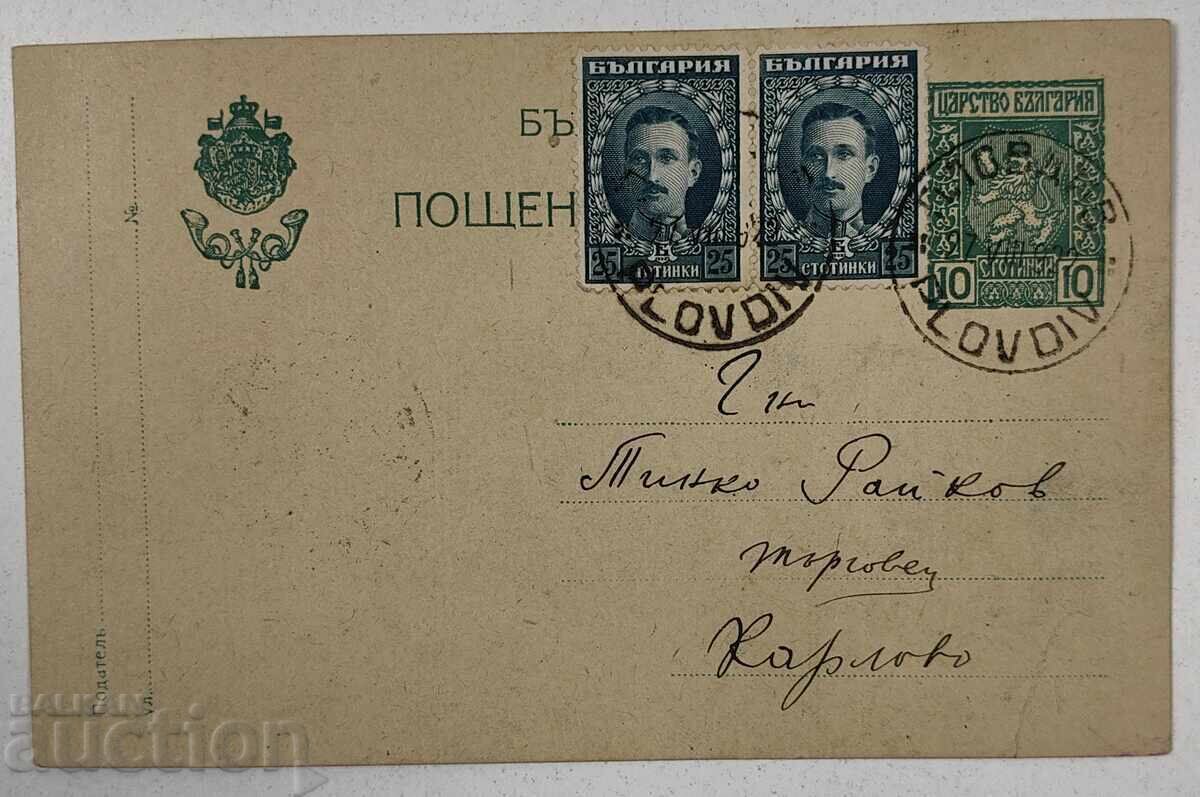 БЪ
ПОЩЕН
БЪЛГАРИЯ
25 СТОТИНКИ 25
БЪЛГАРИЯ
25 СТОТИНКИ 25
ЦАРСТВО БЪЛГАРИЯ
10 СТОТИНКИ 10
PLOVDIV
PLOVDIV
Г-нъ
Тинко Райков
търговец
Карлово
№
Податель
ул.
BALKAN
auction